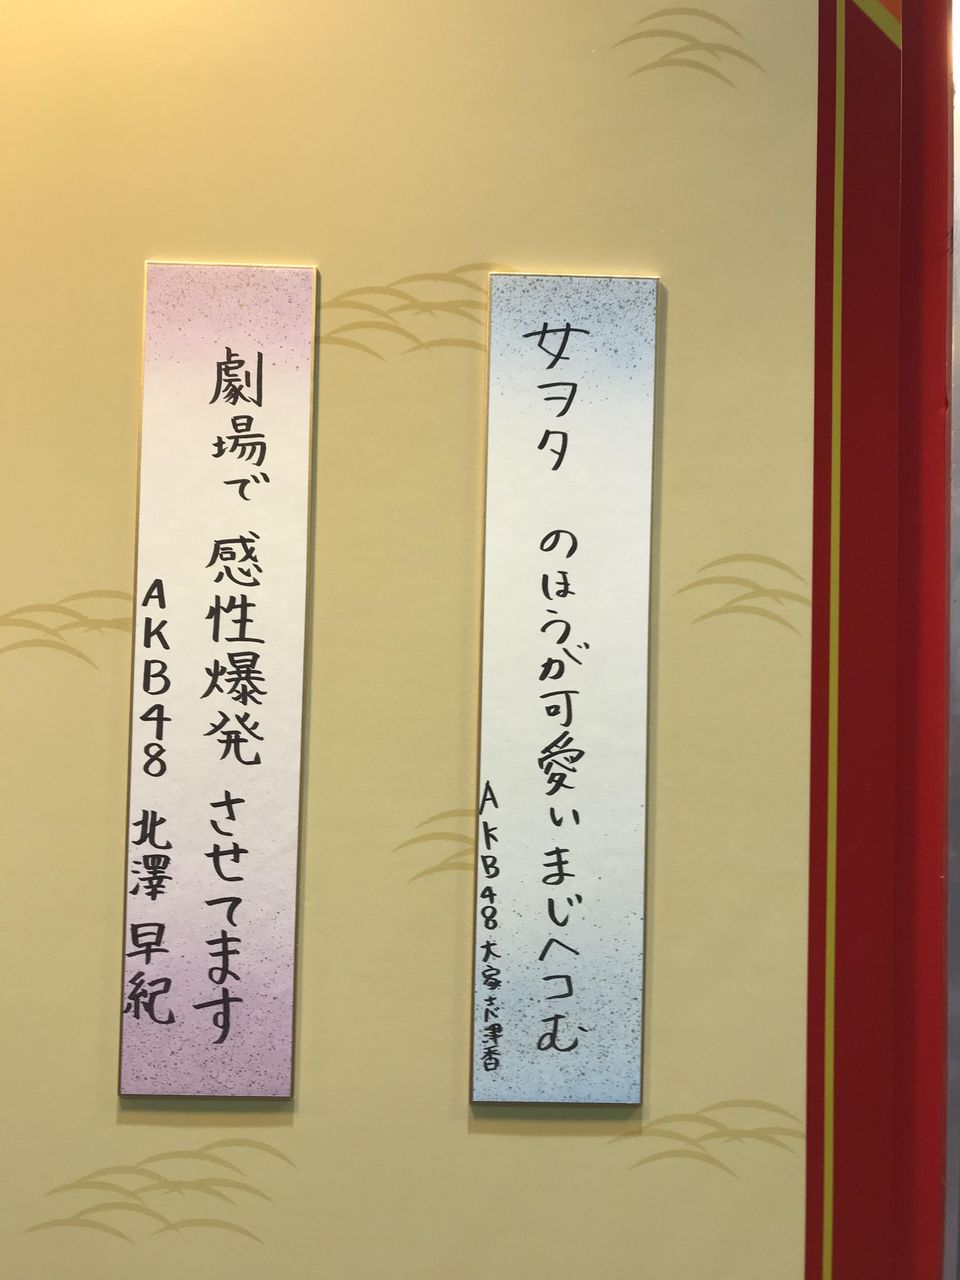 女ヲタ のほうが可愛いまじヘコむ
AKB48 大家志津香
劇場で 感性爆発 させてます
AKB48 北澤 早紀